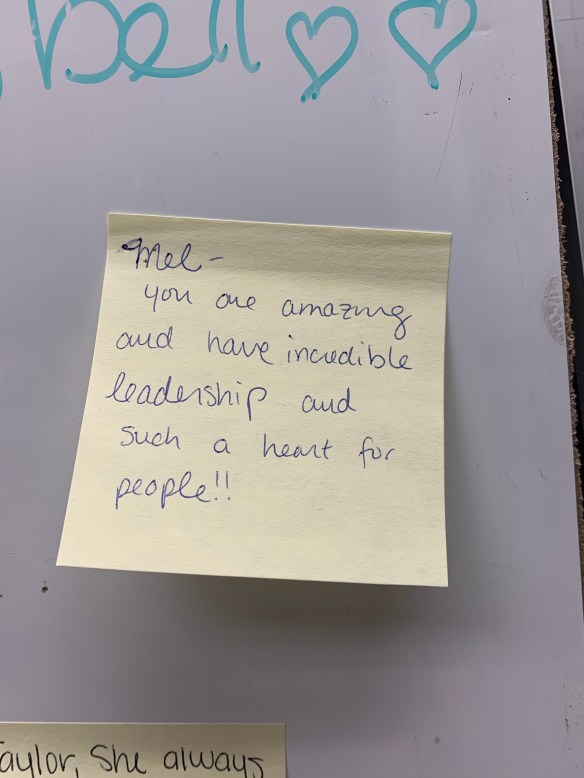 bell ♡ ♡
Mel-
you are amazing
and have incredible
leadership and
such a heart for
people!!
Taylor, She always